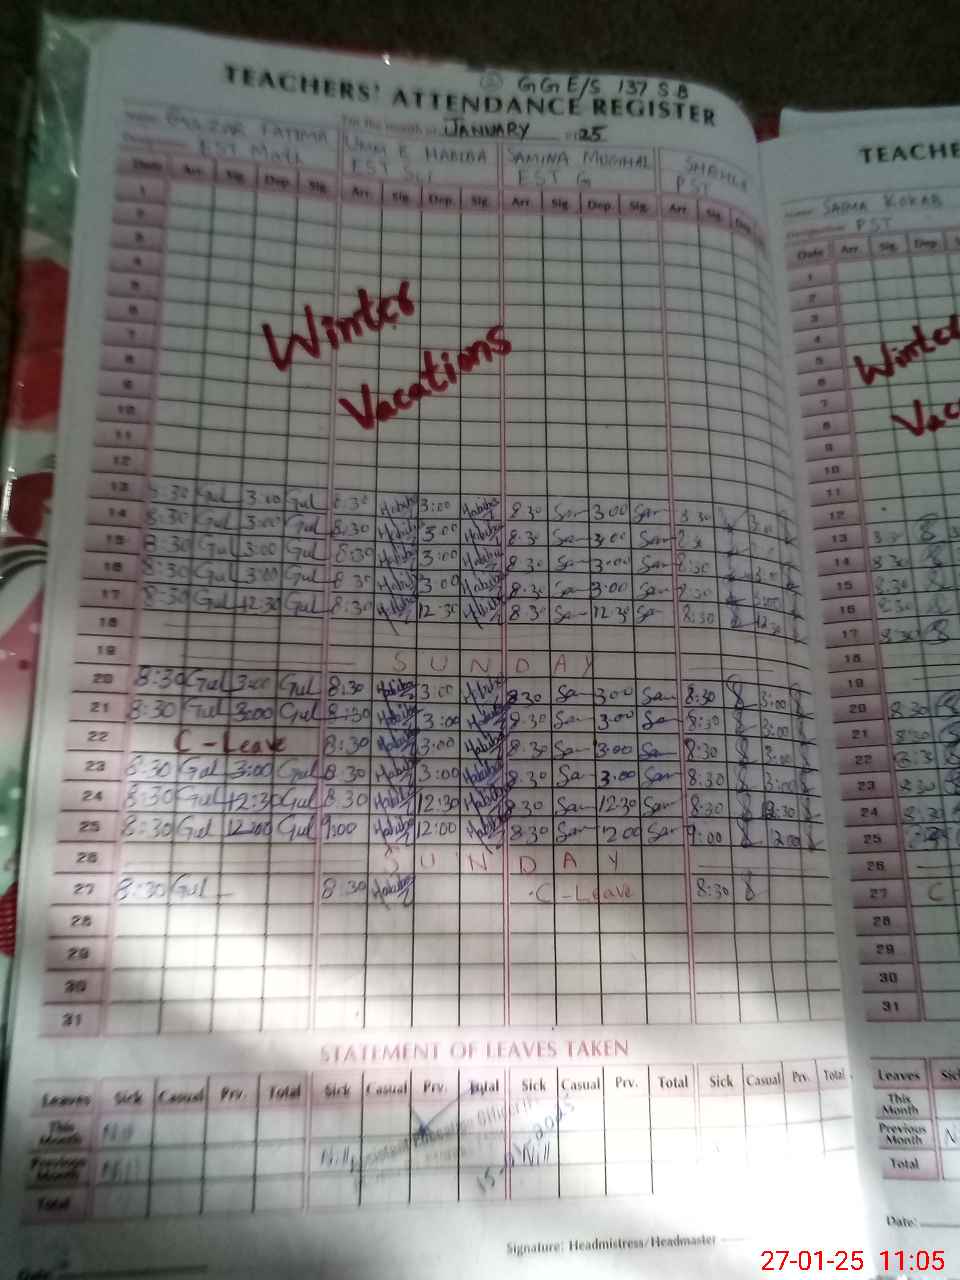 GGE/S 137 SB
TEACHERS' ATTENDANCE REGISTER
For the month of JANUARY 25
GULZAR FATIMA UMM E HABIBA SAMINA MUGHAL SHAHLA
EST Math EST Sci EST G PST
Date Arr. Sig. Dep. Sig. Arr. Sig. Dep. Sig. Arr. Sig. Dep. Sig. Arr. Sig. Dep.
1
2
3
4
5
6
7
8
9
10
11
12
Winter
Vacations
13 8:30 Gul 3:00 Gul 8:30 Habiba 3:00 Habiba 8:30 Sam 3:00 Sam 8:30
14 8:30 Gul 3:00 Gul 8:30 Habiba 3:00 Habiba 8:30 Sam 3:00 Sam
15 8:30 Gul 3:00 Gul 8:30 Habiba 3:00 Habiba 8:30 Sam 3:00 Sam 8:30
16 8:30 Gul 3:00 Gul 8:30 Habiba 3:00 Habiba 8:30 Sam 3:00 Sam 8:30 3:00
17 8:30 Gul 12:30 Gul 8:30 Habiba 12:30 Habiba 8:30 Sam 12:30 Sam 8:30 12:30
18
19 SUNDAY
20 8:30 Gul 3:00 Gul 8:30 Habiba 3:00 Habiba 8:30 Sam 3:00 Sam 8:30 3:00
21 8:30 Gul 3:00 Gul 8:30 Habiba 3:00 Habiba 8:30 Sam 3:00 Sam 8:30 3:00
22 C-Leave 8:30 Habiba 3:00 Habiba 8:30 Sam 3:00 Sam 8:30 3:00
23 8:30 Gul 3:00 Gul 8:30 Habiba 3:00 Habiba 8:30 Sam 3:00 Sam 8:30 3:00
24 8:30 Gul 12:30 Gul 8:30 Habiba 12:30 Habiba 8:30 Sam 12:30 Sam 8:30 12:30
25 8:30 Gul 12:00 Gul 9:00 Habiba 12:00 Habiba 8:30 Sam 12:00 Sam 9:00 12:00
26 SUNDAY
27 8:30 Gul 8:30 Habiba C-Leave 8:30
28
29
30
31
STATEMENT OF LEAVES TAKEN
Leaves Sick Casual Prv. Total Sick Casual Prv. Total Sick Casual Prv. Total Sick Casual Prv. Total
This Month Nil
Previous Month Nill Nill Nill
Total
Signature: Headmistress/Headmaster
TEACHE
Name: SAIMA KOKAB
Designation PST
Date Arr. Sig. Dep.
1
2
3
4
5
6
7
8
9
10
11
12
Winter
Vac
13
14 8:30
15 8:30
16 8:30
17 8:30
18
19
20 8:30
21 8:30
22 8:3
23 8:30
24 8:30
25
26
27 C
28
29
30
31
Leaves Sick
This Month
Previous Month N
Total
Date:
27-01-25 11:05